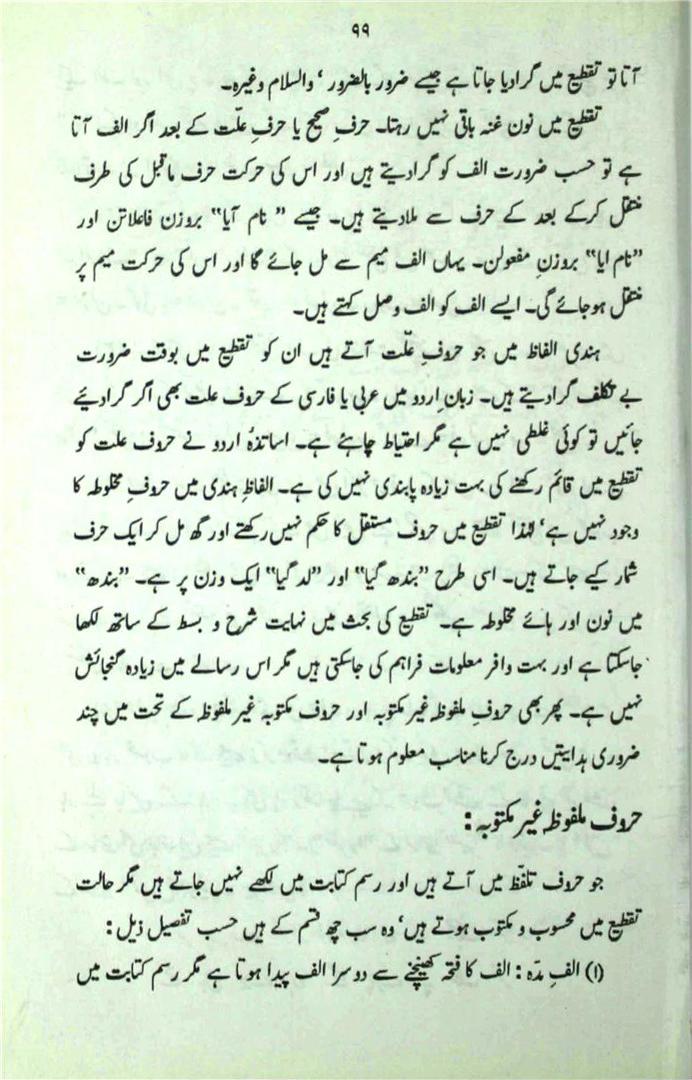 ۹۹
آتا تو تقطیع میں گرادیا جاتا ہے جیسے ضرور بالضرور ‘ والسلام وغیرہ۔
تقطیع میں نون غنہ باقی نہیں رہتا۔ حرفِ صحیح یا حرفِ علّت کے بعد اگر الف آتا
ہے تو حسب ضرورت الف کو گرادیتے ہیں اور اس کی حرکت حرف ماقبل کی طرف
منتقل کرکے بعد کے حرف سے ملادیتے ہیں۔ جیسے ” نام آیا“ بروزن فاعلاتن اور
”نام ایا“ بروزنِ مفعولن۔ یہاں الف میم سے مل جائے گا اور اس کی حرکت میم پر
منتقل ہوجائے گی۔ ایسے الف کو الف وصل کہتے ہیں۔
ہندی الفاظ میں جو حروفِ علّت آتے ہیں ان کو تقطیع میں بوقت ضرورت
بے تکلف گرادیتے ہیں۔ زبانِ اردو میں عربی یا فارسی کے حروف علت بھی اگر گرادئیے
جائیں تو کوئی غلطی نہیں ہے مگر احتیاط چاہئے ہے۔ اساتذہٗ اردو نے حروف علت کو
تقطیع میں قائم رکھنے کی بہت زیادہ پابندی نہیں کی ہے۔ الفاظِ ہندی میں حروفِ مخلوطہ کا
وجود نہیں ہے‘ لہٰذا تقطیع میں حروف مستقل کا حکم نہیں رکھتے اور گھ مل کر ایک حرف
شمار کیے جاتے ہیں۔ اسی طرح ”بندھ گیا“ اور ”لد گیا“ ایک وزن پر ہے۔ ”بندھ“
میں نون اور ہائے مخلوطہ ہے۔ تقطیع کی بحث میں نہایت شرح و بسط کے ساتھ لکھا
جاسکتا ہے اور بہت وافر معلومات فراہم کی جاسکتی ہیں مگر اس رسالے میں زیادہ گنجائش
نہیں ہے۔ پھر بھی حروفِ ملفوظہ غیر مکتوبہ اور حروف مکتوبہ غیر ملفوظہ کے تحت میں چند
ضروری ہدایتیں درج کرنا مناسب معلوم ہوتا ہے۔
حروف ملفوظہ غیر مکتوبہ :
جو حروف تلفّظ میں آتے ہیں اور رسم کتابت میں لکھے نہیں جاتے ہیں مگر حالت
تقطیع میں محسوب و مکتوب ہوتے ہیں‘ وہ سب چھ قسم کے ہیں حسب تفصیل ذیل :
(۱) الفِ مدّہ : الف کا فتحہ کھینچنے سے دوسرا الف پیدا ہوتا ہے مگر رسم کتابت میں